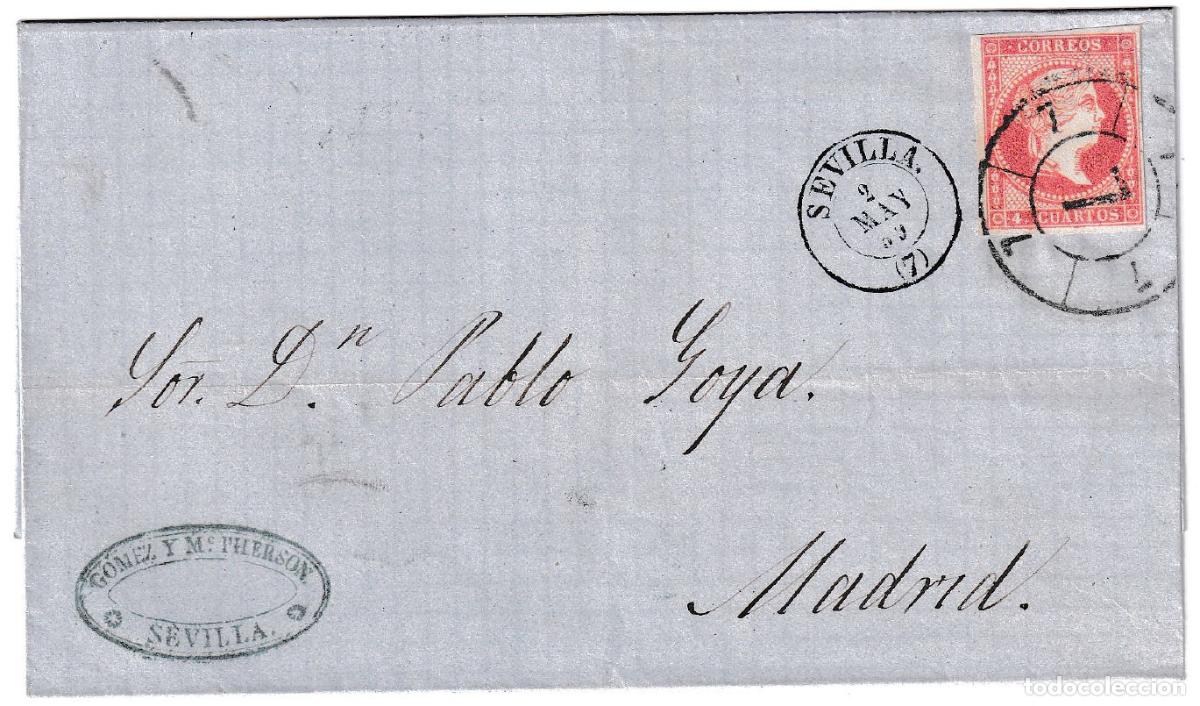 CORREOS
4 CUARTOS
7
7
7
7
SEVILLA.
2
MAY
59
(7)
Sor. Dn. Pablo Goya.
Madrid.
GOMEZ Y Mc. PHERSON.
SEVILLA.
todocoleccion